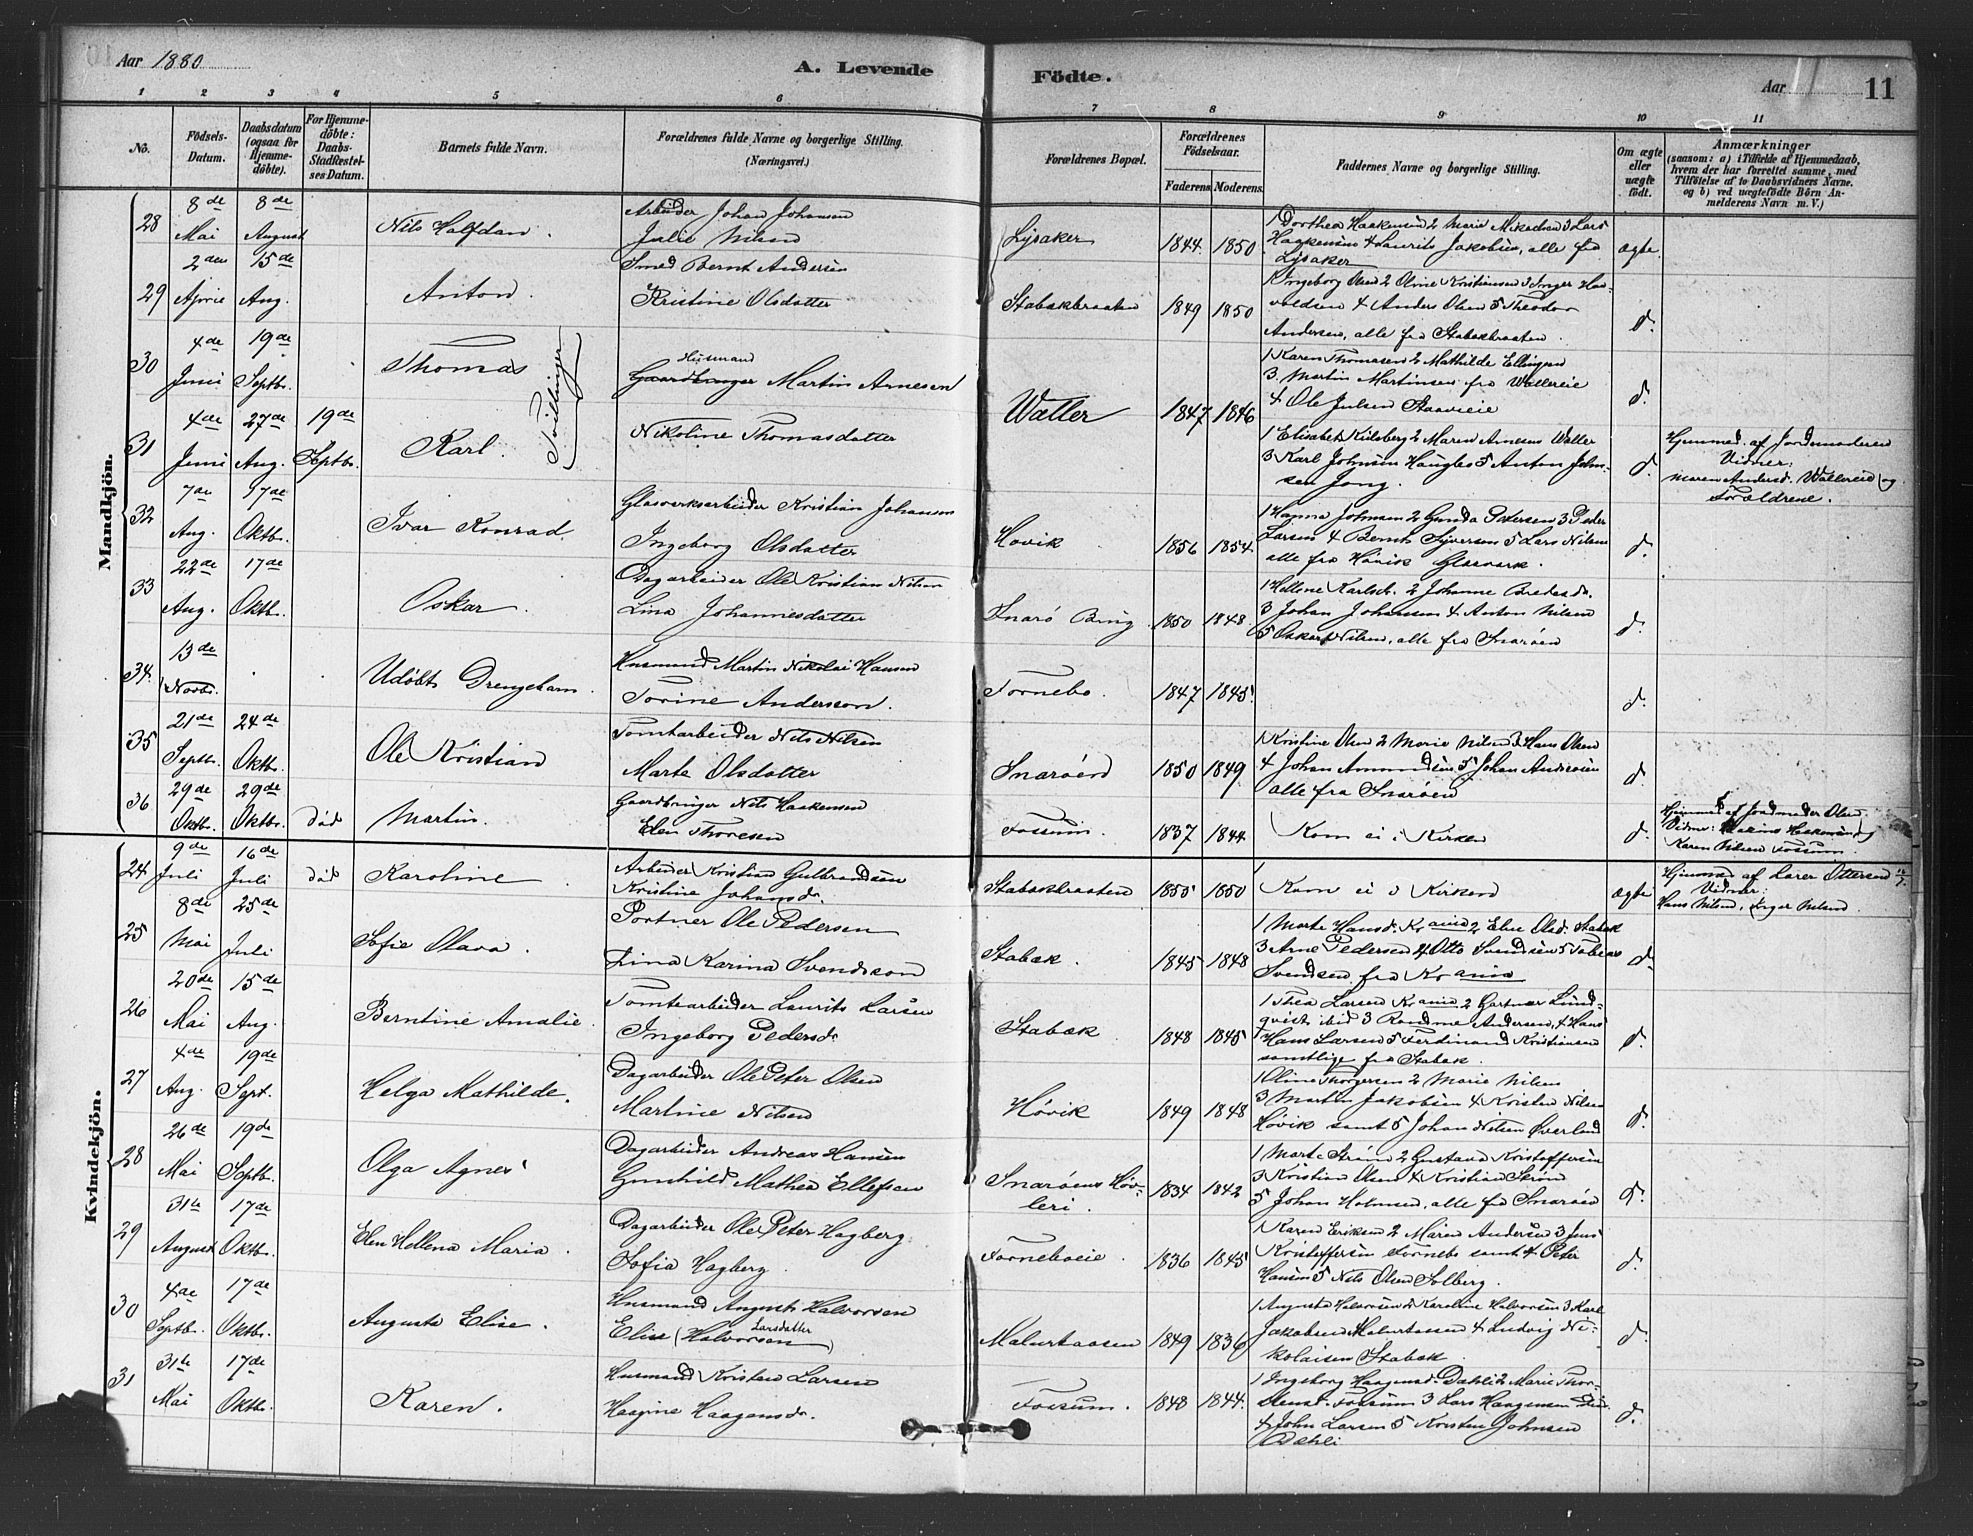 Aar 1880
A. Levende Födte.
Aar 11
1 2 3 4 5 6 7 8 9 10 11
No.
Födsels-Datum.
Daabsdatum (ogsaa for Hjemme-döbte).
For Hjemme-döbte: Daabs-Stadfæstel-ses Datum.
Barnets fulde Navn.
Forældrenes fulde Navne og borgerlige Stilling.
(Næringsvei.)
Forældrenes Bopæl.
Forældrenes Födselsaar.
Faderens. Moderens.
Faddernes Navne og borgerlige Stilling.
Om ægte eller uægte födt.
Anmærkninger
(saasom: a) i Tilfælde af Hjemmedaab,
hvem der har forrettet samme, med
Tilföielse af to Daabsvidners Navne,
og b) ved uægtefödte Börn An-
melderens Navn m. V.)
Mandkjön.
28 8de Mai 8de August Nils Halfdan. Arbeider Johan Johansen
Julie Nilsen
Lysaker 1844. 1850.
1 Dorthea Haakensen 2 Marie Mikaelsen 3 Lars
Haakensen 4 Laurits Jakobsen, alle fra
Lysaker
ægte.
29 2den April 15de Aug. Anton. Smed Bernt Andersen
Kristine Olsdatter
Stabækbraaten 1849 1850
1 Ingeborg Olsen 2 Oline Kristiansen 3 Inger Haa-
valdsen 4 Anders Olsen 5 Theodor
Andersen, alle fra Stabækbraaten.
d.
30 4de Juni 19de Septbr. Thomas Tvillinger
Husmand
Gaardbruger Martin Arnesen
Nikoline Thomasdatter
Waller 1847 1846
1 Karen Thomasen 2 Mathilde Ellingsen
3 Martin Martinsen fra Wallereie
4 Ole Julsen Staaveie
d.
31 4de Juni 27de Aug. 19de Septbr. Karl.
1 Elisabet Kulsberg 2 Maren Arnesen Waller
3 Karl Johnsen Haugløs 5 Anton John-
sen Jong.
d.
Hjemmed. af Jordemoderen
Vidner:
Maren Andersd. Wallereie og
Forældrene.
32 7de Aug. 17de Oktbr. Ivar Konrad Glasværksarbeider Kristian Johansen
Ingeborg Olsdatter
Høvik 1856 1854.
1 Hanna Johnsen 2 Gunda Pedersen 3 Peder
Larsen 4 Bernt Syversen 5 Lars Nilsen
alle fra Høvik Glasværk.
d.
33 22de Aug. 17de Oktbr. Oskar. Dagarbeider Ole Kristian Nilsen
Lina Johannesdatter
Snarø Brug 1850 1848.
1 Hellene Karlsd. 2 Johanne Bredesd.
3 Johan Johansen 4 Anton Nilsen
5 Oskar Nilsen, alle fra Snarøen
d.
34. 13de Novbr. Udøbt Drengebarn. Husmand Martin Nikolai Hansen
Torine Andersson.
Fornebo. 1847 1845.
d.
35 21de Septbr. 24de Oktbr. Ole Kristian Tomtarbeider Nils Nilsen
Marte Olsdatter
Snarøen 1850 1849.
1 Kristine Olsen 2 Marie Nilsen 3 Hans Olsen
4 Johan Amundsen 5 Johan Andersen
alle fra Snarøen
d.
36 29de Oktbr. 29de Oktbr. død Martin. Gaardbruger Nils Haakensen
Elen Thoresen
Fossum. 1837 1844.
Kom ei i Kirken
d.
Hjemmed. af Jordmoder Olsen
Vidner: Marius Haakensen og
Karen Nilsen Fossum.
Kvindekjön.
24 9de Juli 16de Juli død Karoline Arbeider Kristian Gulbrandsen
Kristine Johansd.
Stabækbraaten 1855 1850
Kom ei i Kirken
ægte
Hjemmed. af Lærer Ottersen
Vidner:
Hans Nilsen, Inger Nilsen.
25 8de Mai 25de Juli Sofie Olava. Portner Ole Pedersen
Lina Karina Svendsson
Stabæk. 1845 1848
1 Marte Hansd. Kr.ania 2 Elen Olsd. Stabæk
3 Arne Pedersen 4 Otto Svendsen 5 Tobias
Svendsen fra Kr.ania
d.
26 20de Mai 15de Aug. Berntine Amalie. Tomtearbeider Laurits Larsen
Ingeborg Pedersd.
Stabæk 1848 1845
1 Thea Larsen Kr.ania 2 Gartner Lund-
qvist ibid 3 Randine Andersen, 4 Hans
Hans Larsen 5 Ferdinand Kristiansen
samtlige fra Stabæk.
d.
27 4de Aug. 19de Sept. Helga Mathilde. Dagarbeider Ole Peter Olsen
Martine Nilsen
Høvik 1849 1848
1 Oline Thorgersen 2 Marie Nilsen
3 Martin Jakobsen 4 Kristen Nilsen
Høvik samt 5 Johan Nilsen Øverland
d.
28 26de Mai 19de Septbr. Olga Agnes Dagarbeider Andreas Hansen
Gunhild Mathea Ellefsen
Snarøens Høv-
leri. 1834 1842
1 Marte Strøm 2 Gustava Kristoffersen
3 Kristian Olsen 4 Kristian Strøm
5 Johan Holmsen, alle fra Snarøen
d.
29 31te August 17de Oktbr. Elen Hellena Maria. Dagarbeider Ole Peter Hagberg
Sofia Hagberg.
Forneboeie. 1836 1845
1 Karen Eriksen 2 Maren Andersen 3 Jens
Kristoffersen Fornebo samt 4 Peter
Hansen 5 Nils Olsen Solberg.
d.
30 4de Septbr. 17de Oktbr. Augusta Elise. Husmand August Halvorsen
Elise (Halvorsen) Larsdatter
Malurtaasen 1849 1836
1 Augusta Halvorsen 2 Karoline Halvorsen 3 Karl
Jakobsen Malurtaasen 4 Ludvig Ni-
kolaisen Stabæk.
d.
31 31te Mai 17de Oktbr. Karen. Husmand Kristen Larsen
Haagine Haagensd.
Fossum. 1848 1844.
1 Ingeborg Haagensd. Dæhli 2 Marie Thor-
stensd. Fossum 3 Lars Haagensen
4 John Larsen 5 Kristen Johnsen
Dæhli
d.